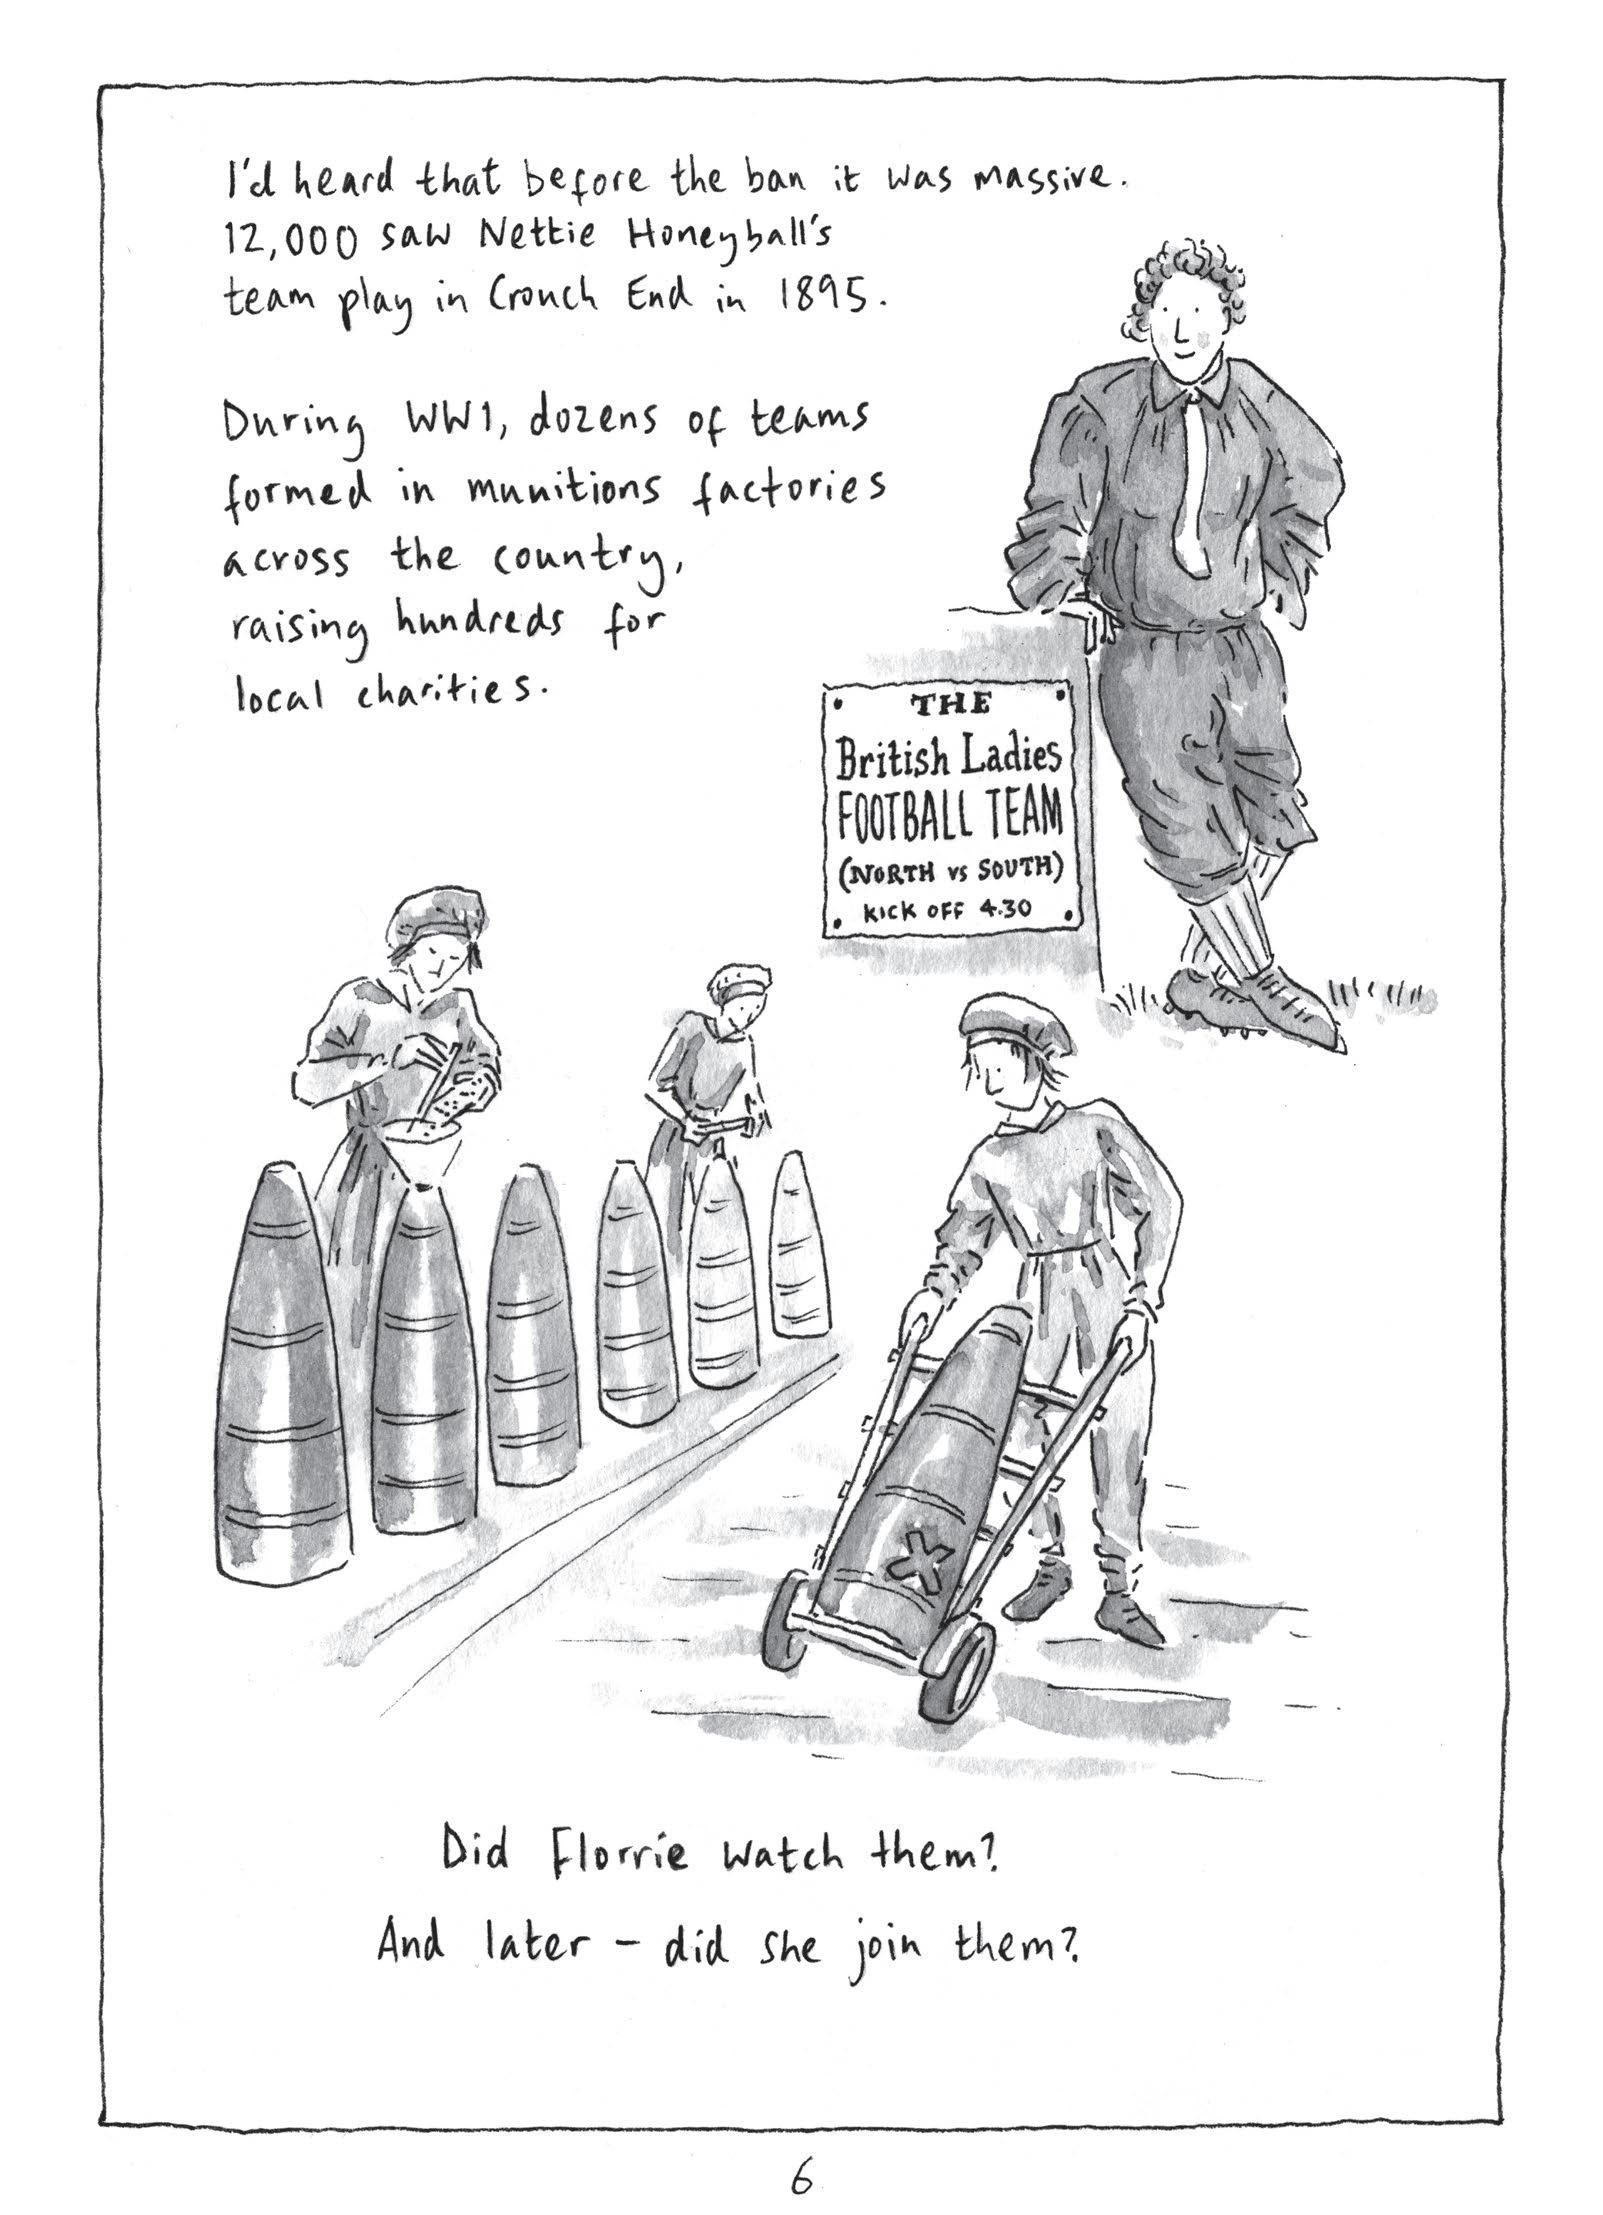 I'd heard that before the ban it was massive.
12,000 saw Nettie Honeyball's
team play in Crouch End in 1895.
During WW1, dozens of teams
formed in munitions factories
across the country,
raising hundreds for
local charities.
THE
British Ladies
FOOTBALL TEAM
(NORTH vs SOUTH)
KICK OFF 4.30
X
Did Florrie watch them?
And later – did she join them?
6